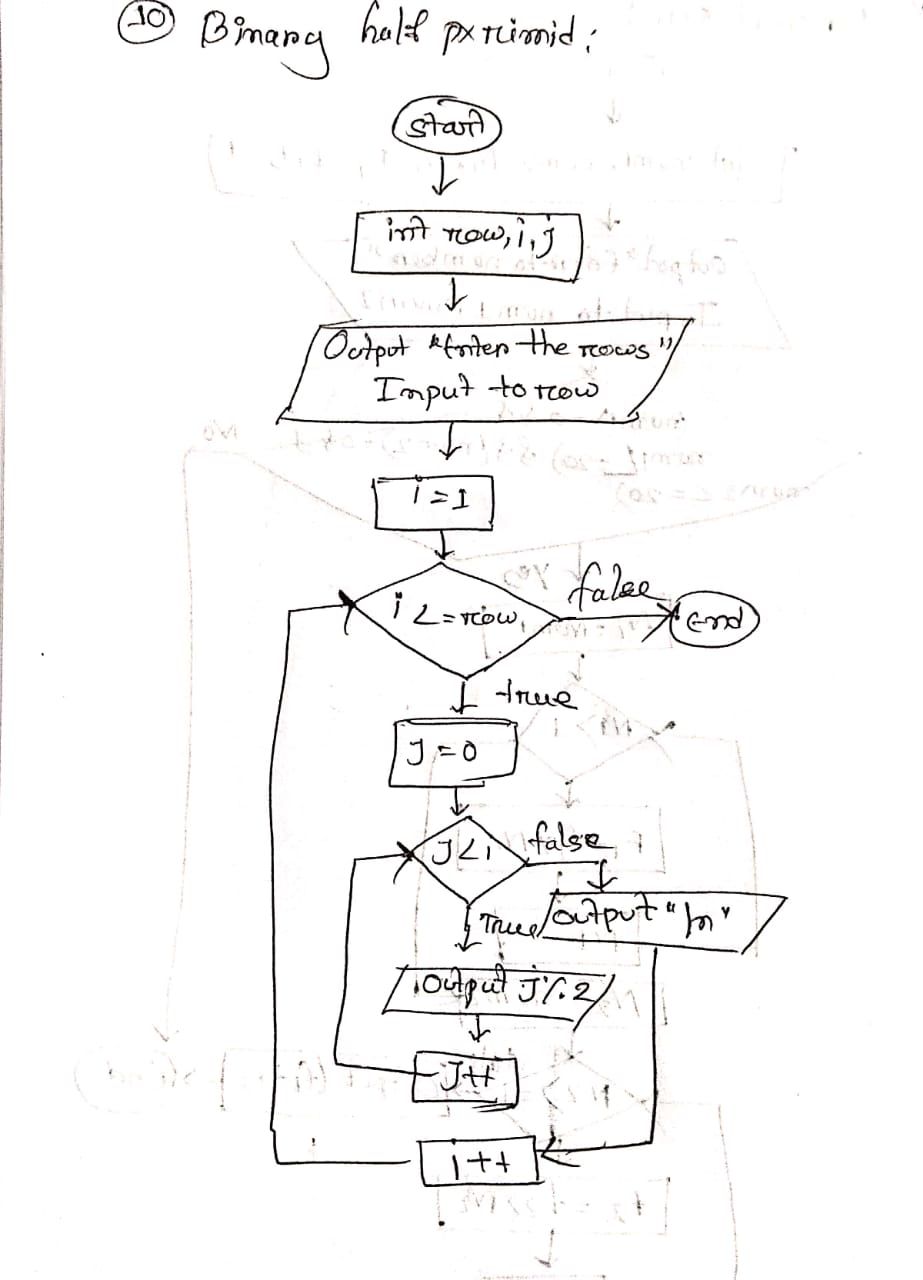 10 Binary half
start
int row, i, j
Output "Enter the rows"
Input to row
i = 1
i <= row
false
End
true
J = 0
J < i
false
Output "\n"
True
Output J % 2
J++
i++